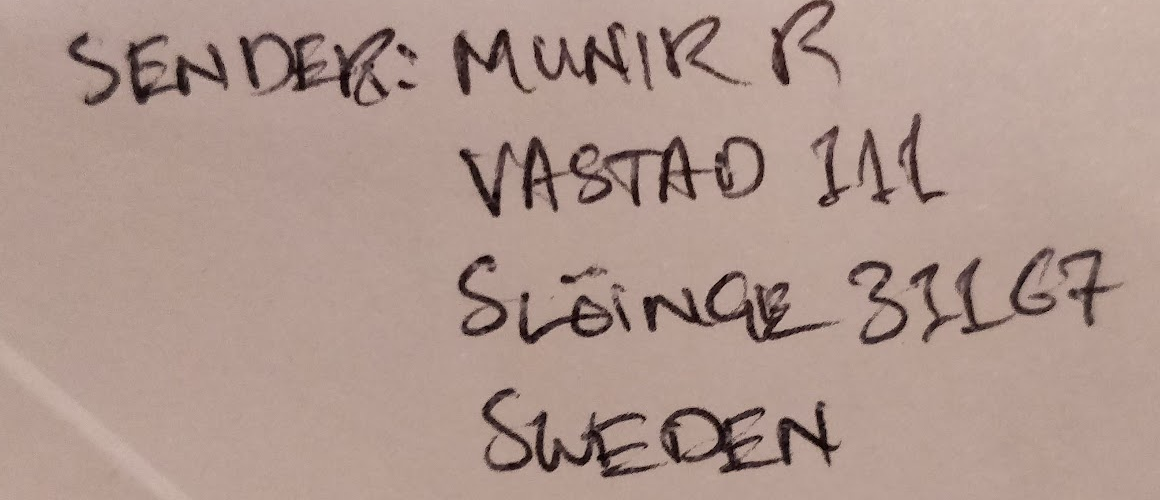 SENDER: MUNIR R
VASTAD 111
SLÖINGE 31167
SWEDEN